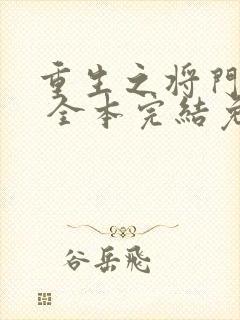 重生之将門
全本完結
谷岳飛